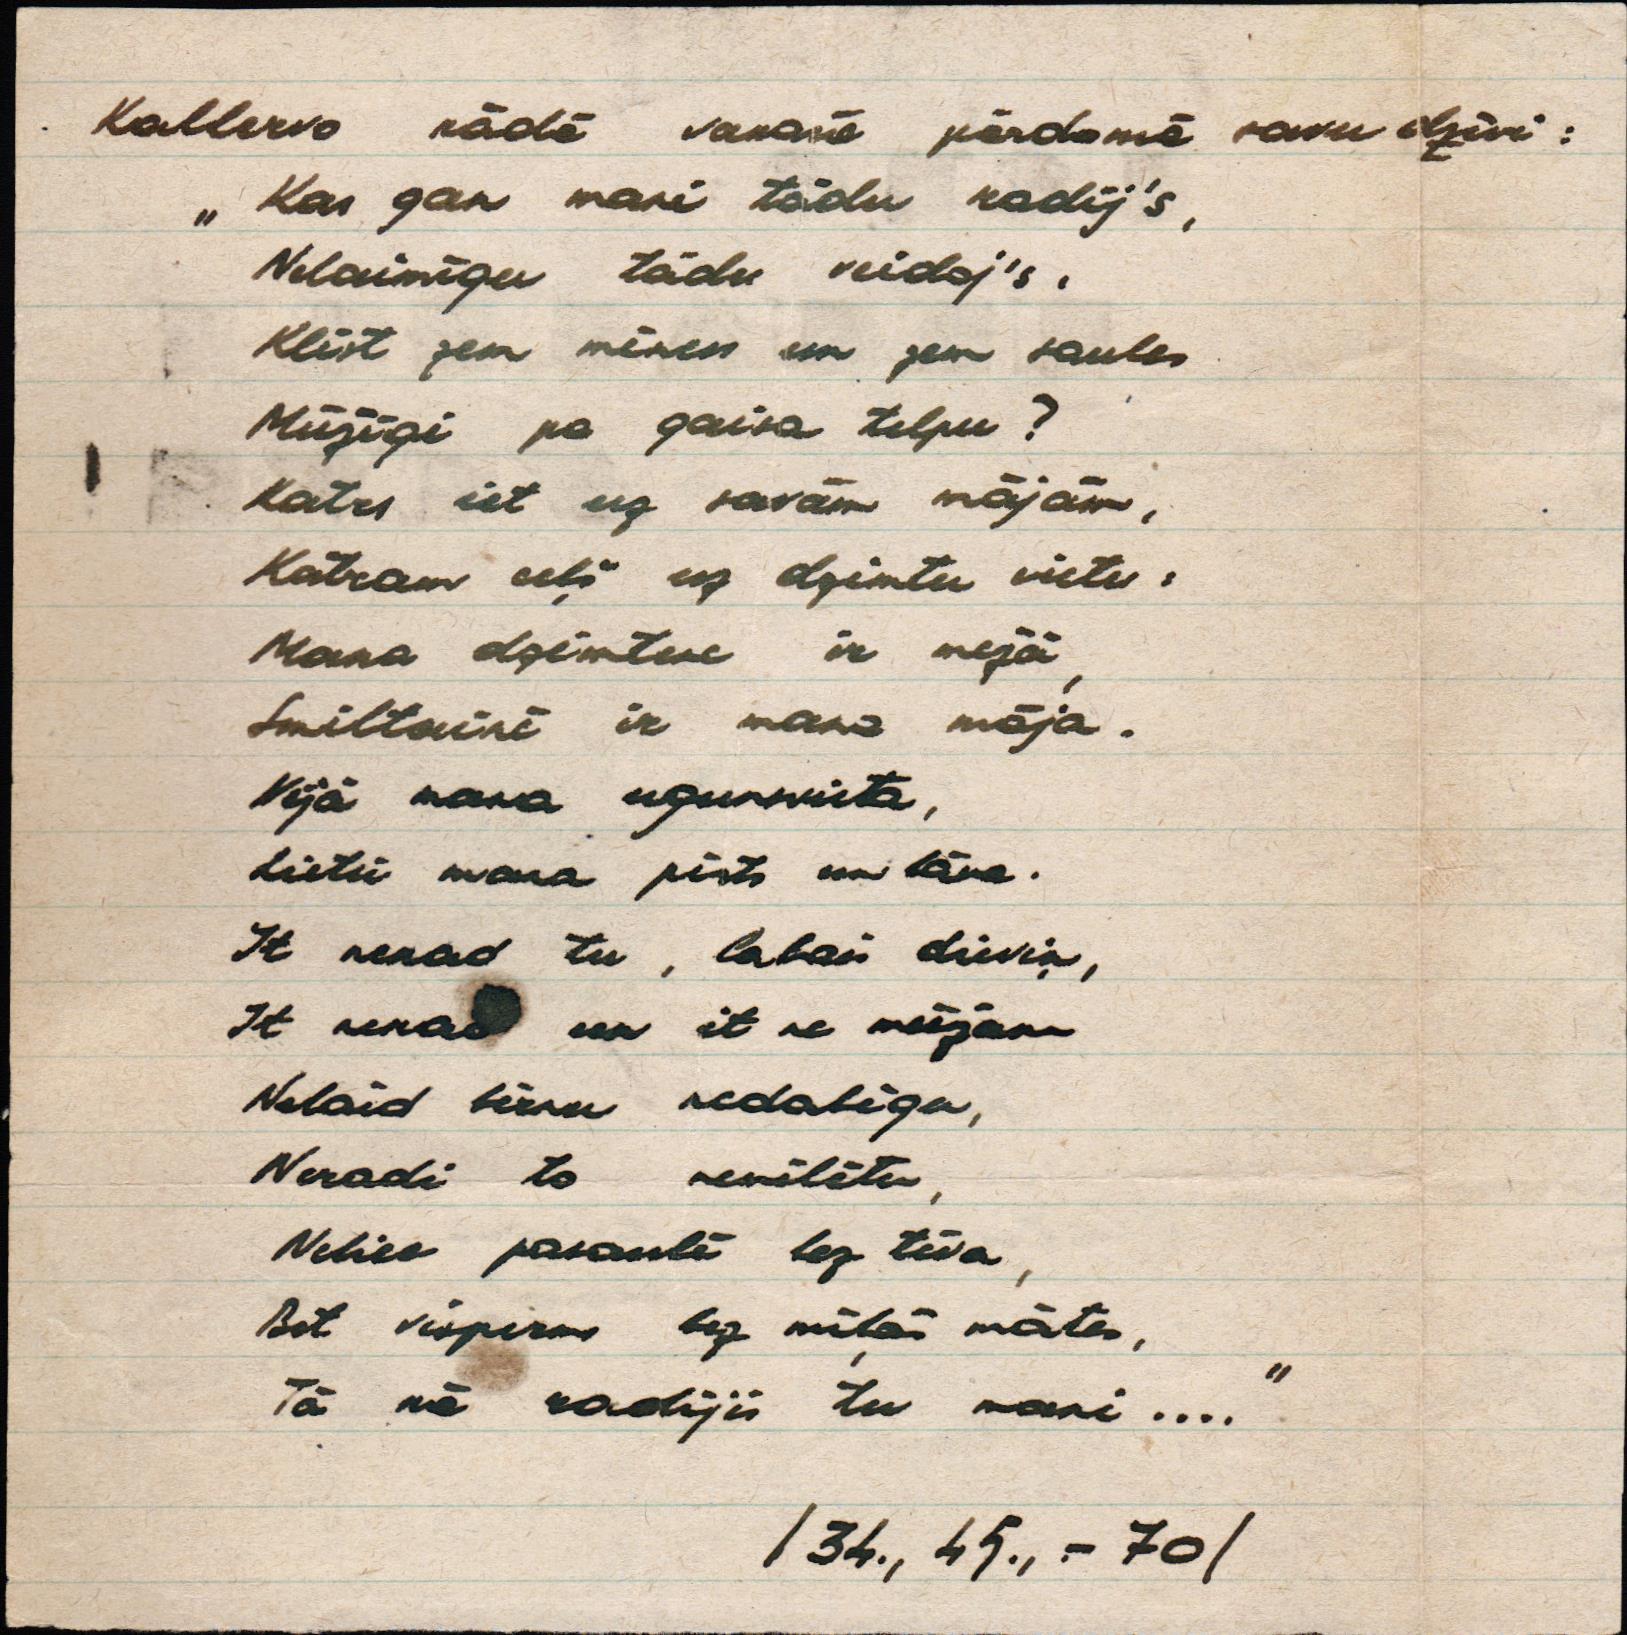 Kallervo kādā vakarā pārdomā savu dzīvi:
„Kas gan mani tādu radīj's,
Nelaimīgu tādu veidoj's,
Klīst zem mēness un zem saules
Mūžīgi pa gaisa telpu?
Katrs iet uz savām mājām,
Katram ceļš uz dzimtu vietu:
Mana dzimtene ir mežā,
Smiltainē ir mana māja.
Vējā mana ugunsvieta,
Lietū mana pirts un lāva.
It nekad tu, labais dieviņ,
It nekad un it ne mūžam
Nelaid bērnu nedabīgu,
Neradi to nemīlētu,
Neliec pasaulē bez tēva,
Bet vispirms bez mīļās mātes,
Tā kā radījis tu mani...."
/34., 45., - 70/